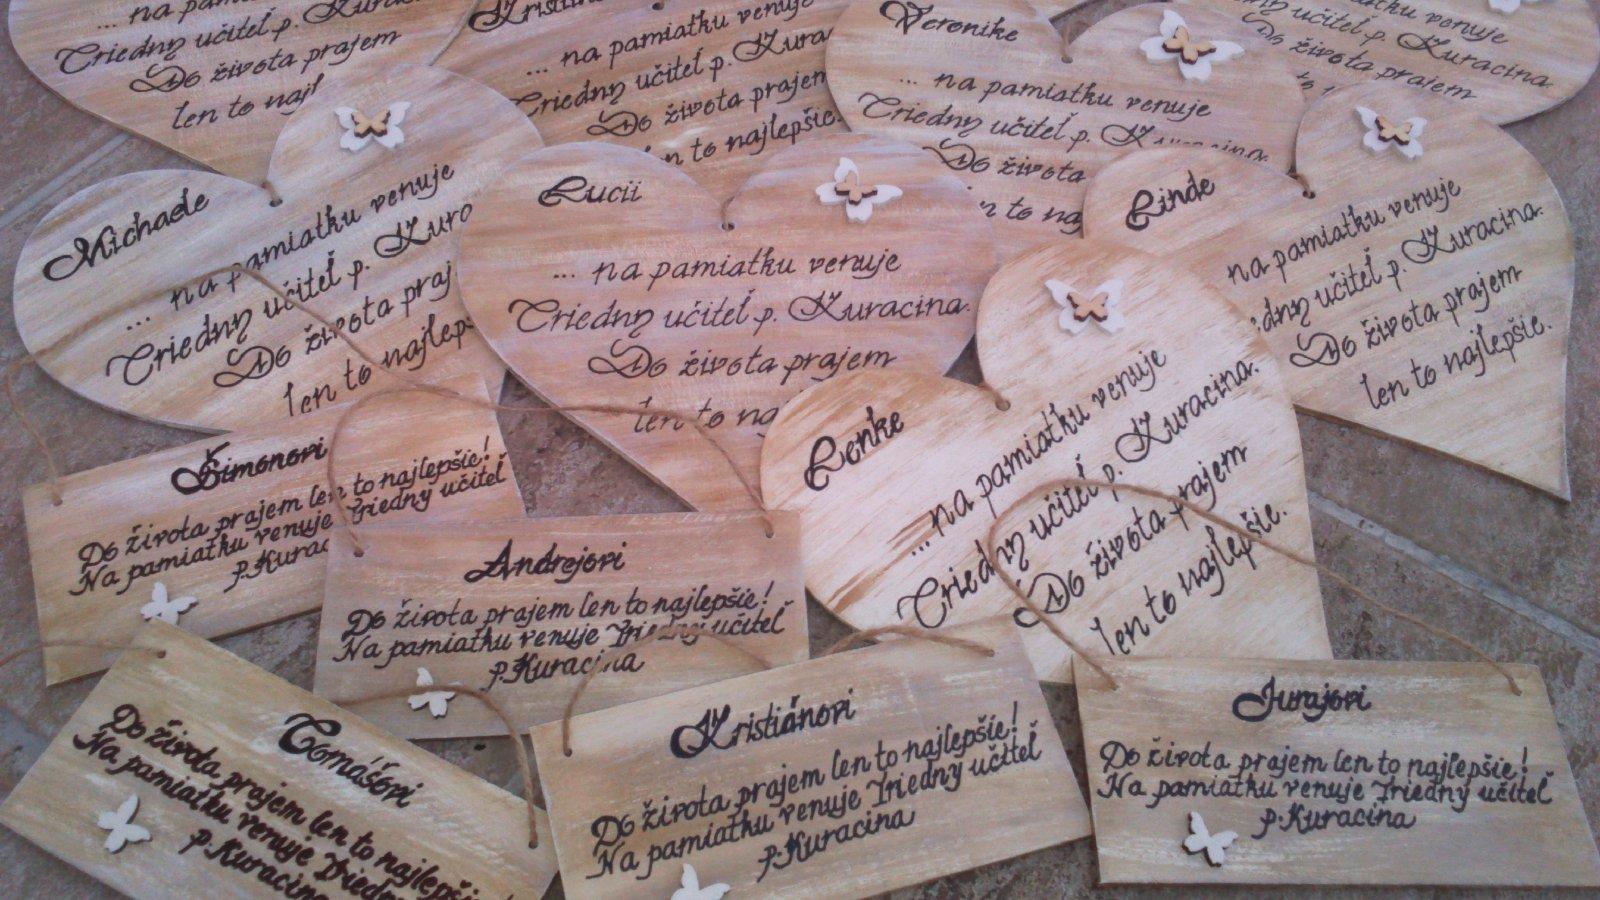 ... na pam
Triedny učiteľ p. Kurac
Do života prajem
len to naj
na pamiatku venuje
Triedny učiteľ p. Kura
Do života prajem
to najlepšie.
Veronike
... na pamiatku venuje
Triedny učiteľ p.
Do života
to na
venuje
učiteľ p. Kuracina
Do života prajem
Michaele
... na pamiatku venuje
Triedny učiteľ p. Kura
Do života praj
len to najlep
Lucii
... na pamiatku venuje
Triedny učiteľ p. Kuracina.
Do života prajem
len to na
Linde
na pamiatku venuje
učiteľ p. Kuracina.
Do života prajem
len to najlepšie.
Lenke
... na pamiatku venuje
Triedny učiteľ p. Kuracina.
Do života prajem
len to najlepšie.
Šimonovi
Do života prajem len to najlepšie!
Na pamiatku venuje Triedny učiteľ
p. Kurac
Andrejovi
Do života prajem len to najlepšie!
Na pamiatku venuje Triedny učiteľ
p. Kuracina
Tomášovi
Do života prajem len to najlepšie
Na pamiatku venuje Triedn
p. Kuracina
Kristiánovi
Do života prajem len to najlepšie!
Na pamiatku venuje Triedny učiteľ
p. Kuracina
Jurajovi
Do života prajem len to najlepšie!
Na pamiatku venuje Triedny učiteľ
p. Kuracina